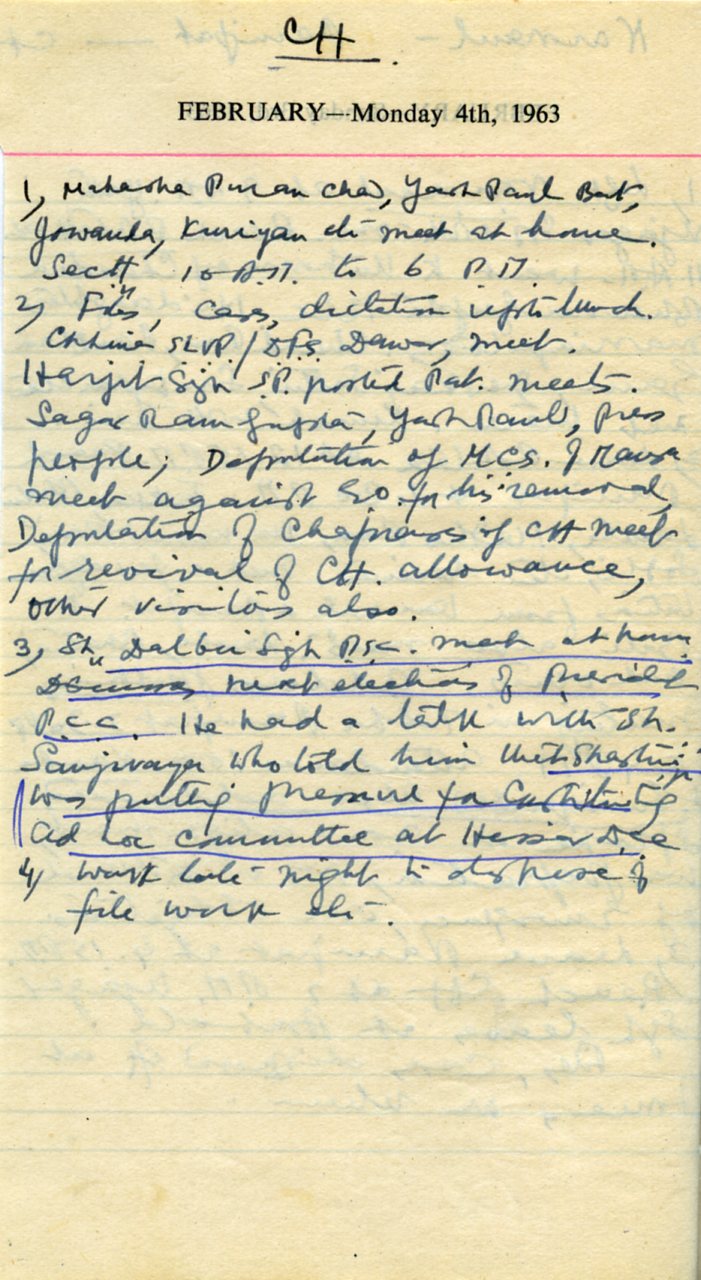 CH.
FEBRUARY—Monday 4th, 1963
1, Mahasha Puran Chad, Yash Paul Bat,
Jowanda, Kuriyan etc meet at home.
Sectt 10 A.M. to 6 P.M.
2, Files, cases, dictation upto lunch.
Chhina SLVP/DFS. Dawar, meet.
Harjit Sigh S.P. posted Pat. meets.
Sagar Ram Gupta, Yash Paul, Press
people; Deputation of M.Cs. of Mansa
meet against EO. for his removal,
Deputation of Chaprasis of CH meet
for revival of CH. allowance,
other visitors also.
3, Sh. Dalbir Sigh P.S.C. meet at home
Discusses next elections of Presidet
P.C.C. He had a talk with Sh.
Sanjivayya who told him that Shastriji
was puttig pressure for Constitutig
Ad hoc committee at Hissar Dce
4, work late night to dispose of
file work etc.